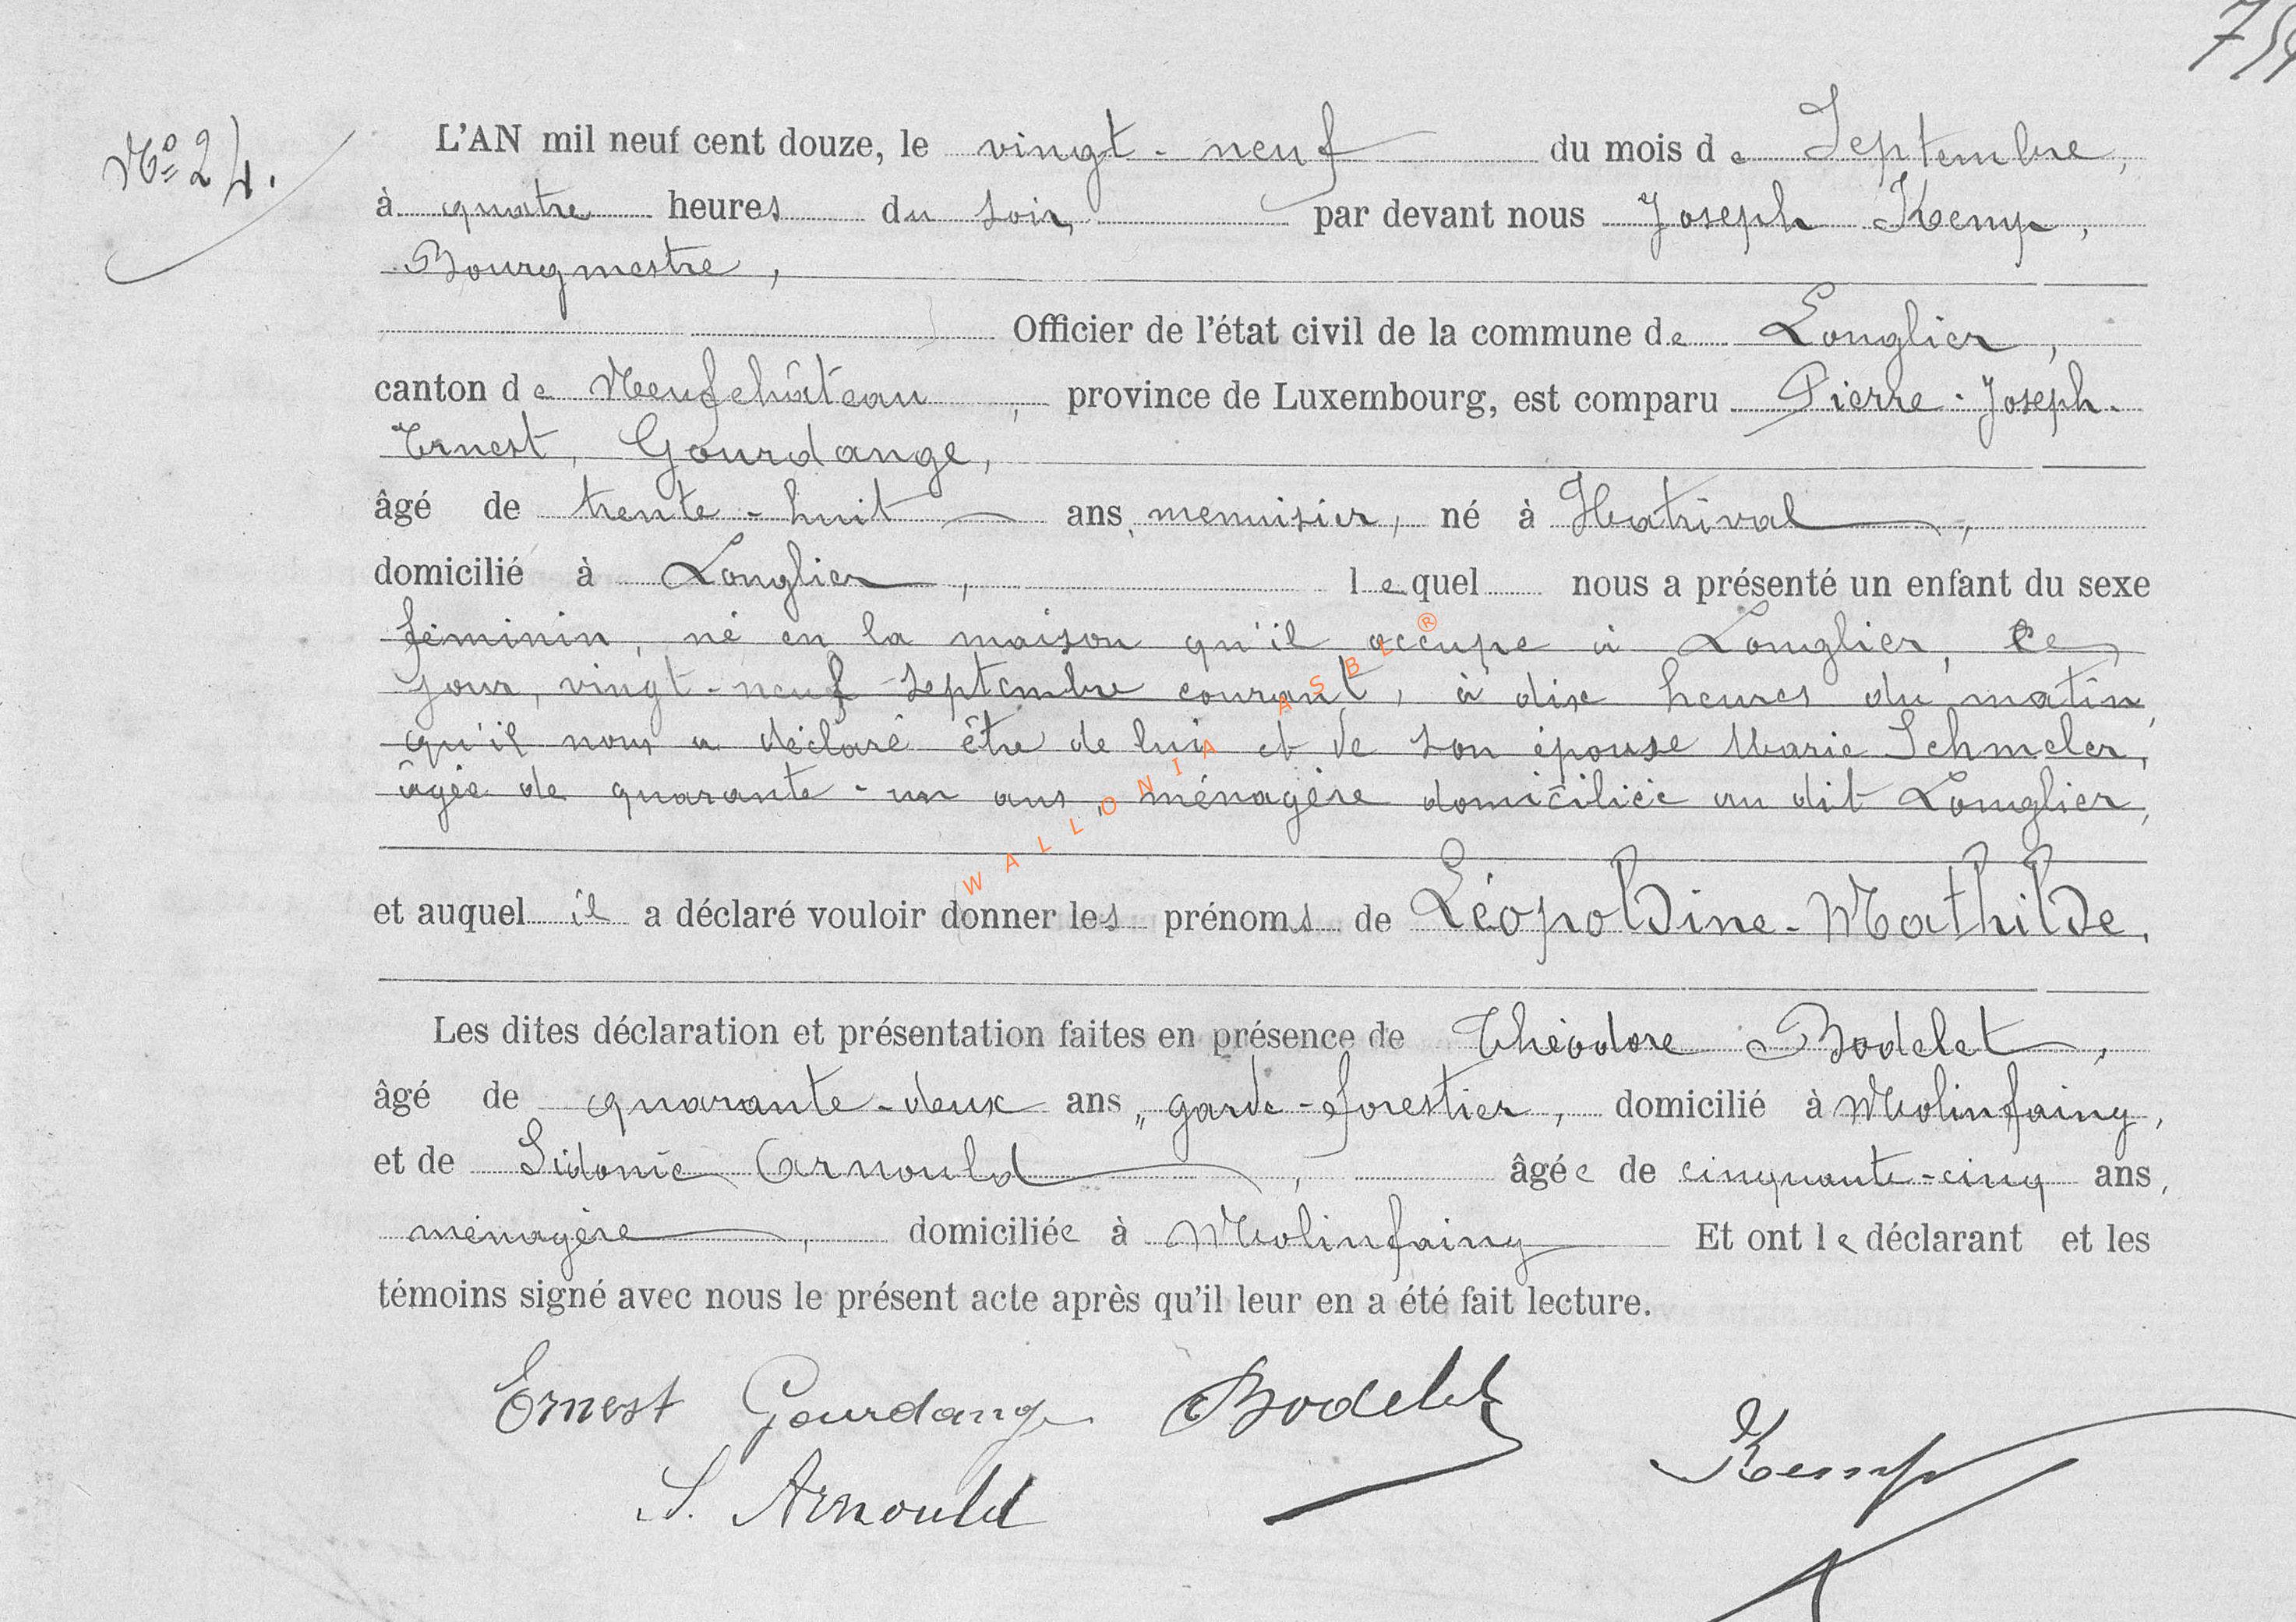 L'AN mil neuf cent douze, le vingt-neuf du mois de Septembre,
N° 24.
à quatre heures du soir, par devant nous Joseph Kemp,
Bourgmestre,
Officier de l'état civil de la commune de Longlier,
canton de Neufchâteau, province de Luxembourg, est comparu Pierre-Joseph-
Ernest, Gourdange,
âgé de trente-huit ans, menuisier, né à Hatrival,
domicilié à Longlier, lequel nous a présenté un enfant du sexe
féminin, né en la maison qu'il occupe à Longlier, ce
jour, vingt-neuf septembre courant, à dix heures du matin,
qu'il nous a déclaré être de lui et de son épouse Marie Schmeler,
âgée de quarante-un ans, ménagère domiciliée au dit Longlier,
et auquel il a déclaré vouloir donner les prénoms de Léopoldine-Mathilde.
Les dites déclaration et présentation faites en présence de Théodore Bodelet,
âgé de quarante-deux ans, garde-forestier, domicilié à Molinfaing,
et de Sidonie Arnould, âgée de cinquante-cinq ans,
ménagère, domiciliée à Molinfaing Et ont le déclarant et les
témoins signé avec nous le présent acte après qu'il leur en a été fait lecture.
Ernest Gourdange Bodelet
Kemp
S. Arnould
WALLONIA ASBL ®